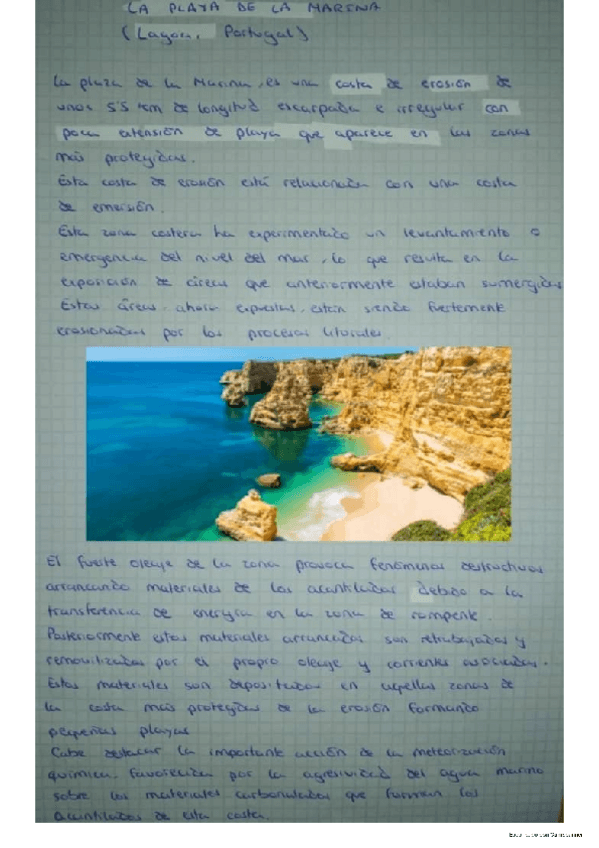 LA PLAYA DE LA MARINA
(Lagoa, Portugal)
La playa de la Marina, es una costa de erosión de
unos 5'5 km de longitud escarpada e irregular con
poca extensión de playa que aparece en las zonas
más protegidas.
Esta costa de erosión está relacionada con una costa
de emersión.
Esta zona costera ha experimentado un levantamiento o
emergencia del nivel del mar, lo que resulta en la
exposición de áreas que anteriormente estaban sumergidas.
Estas áreas, ahora expuestas, están siendo fuertemente
erosionadas por los procesos litorales.
El fuerte oleaje de la zona provoca fenómenos destructivos
arrancando materiales de los acantilados debido a la
transferencia de energía en la zona de rompiente.
Posteriormente estos materiales arrancados son retrabajados y
removilizados por el propio oleaje y corrientes asociadas.
Estos materiales son depositados en aquellas zonas de
la costa más protegidas de la erosión formando
pequeñas playas
Cabe destacar la importante acción de la meteorización
química, favorecida por la agresividad del agua marina
sobre los materiales carbonatados que forman los
acantilados de esta costa.